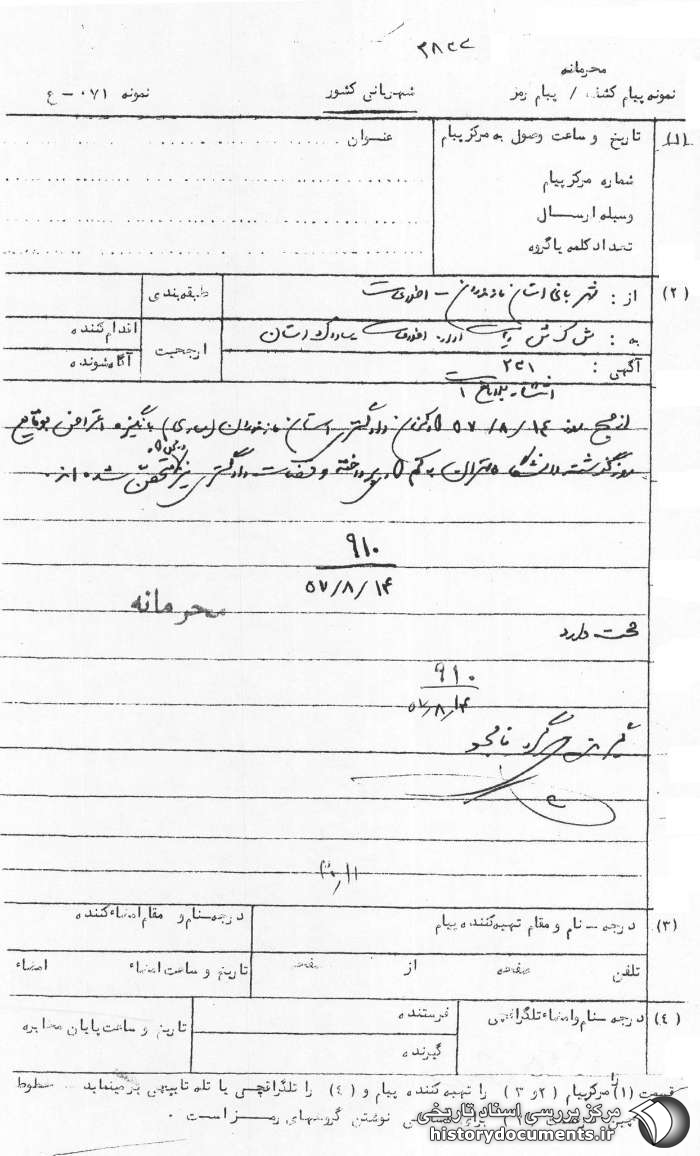 محرمانه
نمونه پیام کشف / پیام رمز
شهربانی کشور
نمونه ۰۷۱ - ع
(۱)
تاریخ و ساعت وصول به مرکز پیام
عنوان
شماره مرکز پیام
وسیله ارسال
تعداد کلمه یا گروه
(۲)
از : شهربانی استان مازندران - اطلاعات
طبقه بندی
به :
ریاست اداره اطلاعات ساواک استان
ارجحیت
اقدام کننده
آگاه شونده
آگهی :
از صبح روز ۵۷/۸/۱۴ کارکنان دادگستری استان مازندران (ساری) بانگیزه اعتراض بوقایع
روز گذشته دانشگاه تهران به کم کاری پرداخته و قضات دادگستری نیز متحصن شده اند.
۹۱۰
۵۷/۸/۱۴
محرمانه
صحت دارد
۹۱۰
۵۷/۸/۱۴
(۳)
درجه - نام و مقام تهیه کننده پیام
درجه - نام و مقام امضاء کننده
تلفن صفحه از صفحه
تاریخ و ساعت امضاء امضاء
(۴)
درجه - نام و امضاء تلگرافچی
فرستنده
گیرنده
تاریخ و ساعت پایان مخابره
قسمت (۱) مرکز پیام (۲ و ۳) را تهیه کننده پیام و (۴) را تلگرافچی یا تله تایپچی پر مینماید خطوط
نوشتن گروههای رمز است .
مرکز بررسی اسناد تاریخی
historydocuments.ir